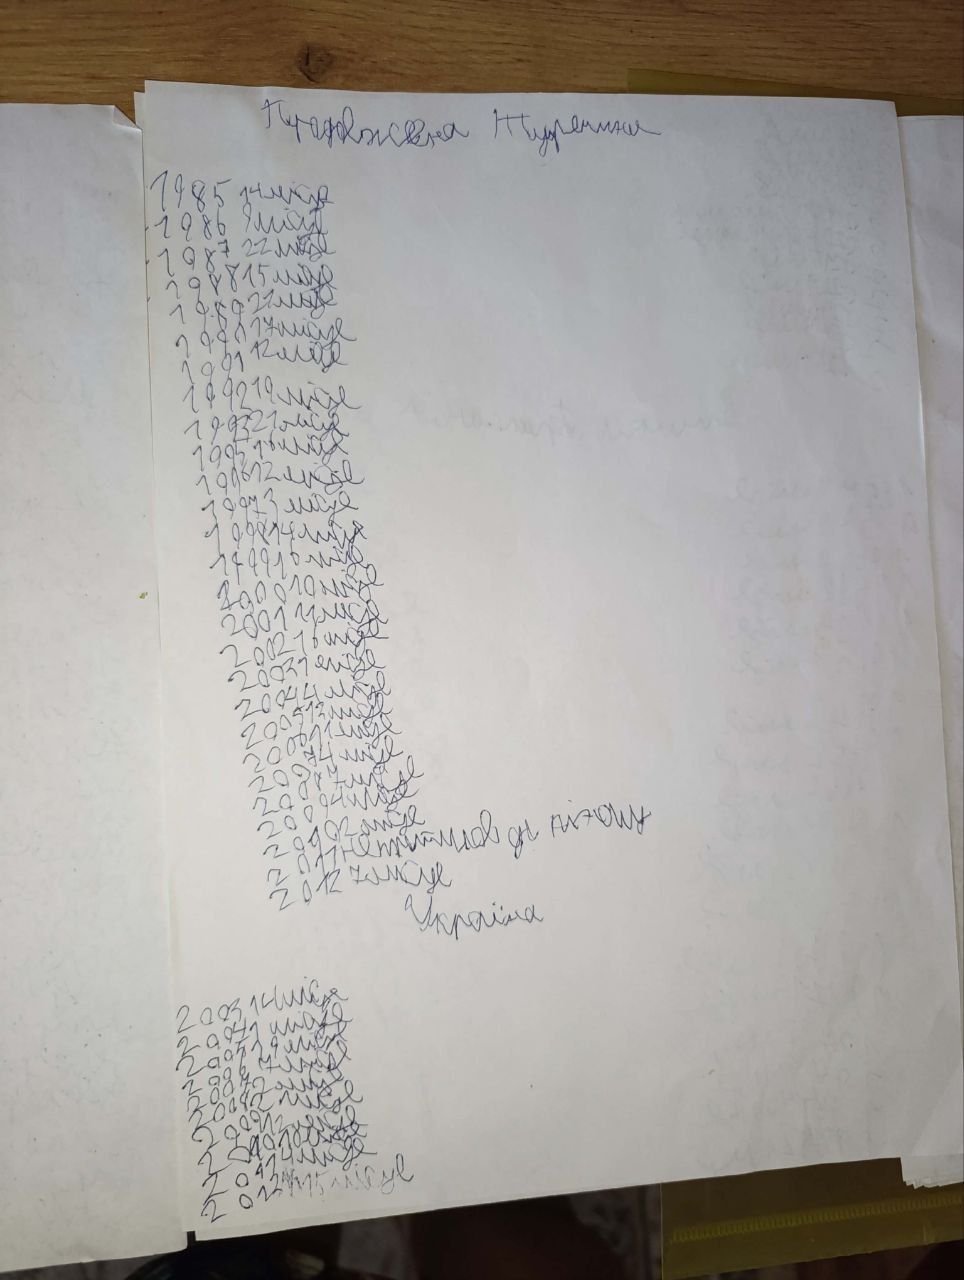 Продовження Туреччини
1985 14 місце
1986 9 місце
1987 22 місце
1988 15 місце
1989 21 місце
1990 17 місце
1991 12 місце
1992 19 місце
1993 21 місце
1995 16 місце
1996 12 місце
1997 3 місце
1998 14 місце
1999 16 місце
2000 10 місце
2001 11 місце
2002 16 місце
2003 1 місце
2004 4 місце
2005 13 місце
2006 11 місце
2007 4 місце
2008 7 місце
2009 4 місце
2010 2 місце
2011
2012 7 місце
Україна
2003 14 місце
2004 1 місце
2005 19 місце
2006 7 місце
2007 2 місце
2008 2 місце
2009 12 місце
2010 10 місце
2011 4 місце
2012 15 місце